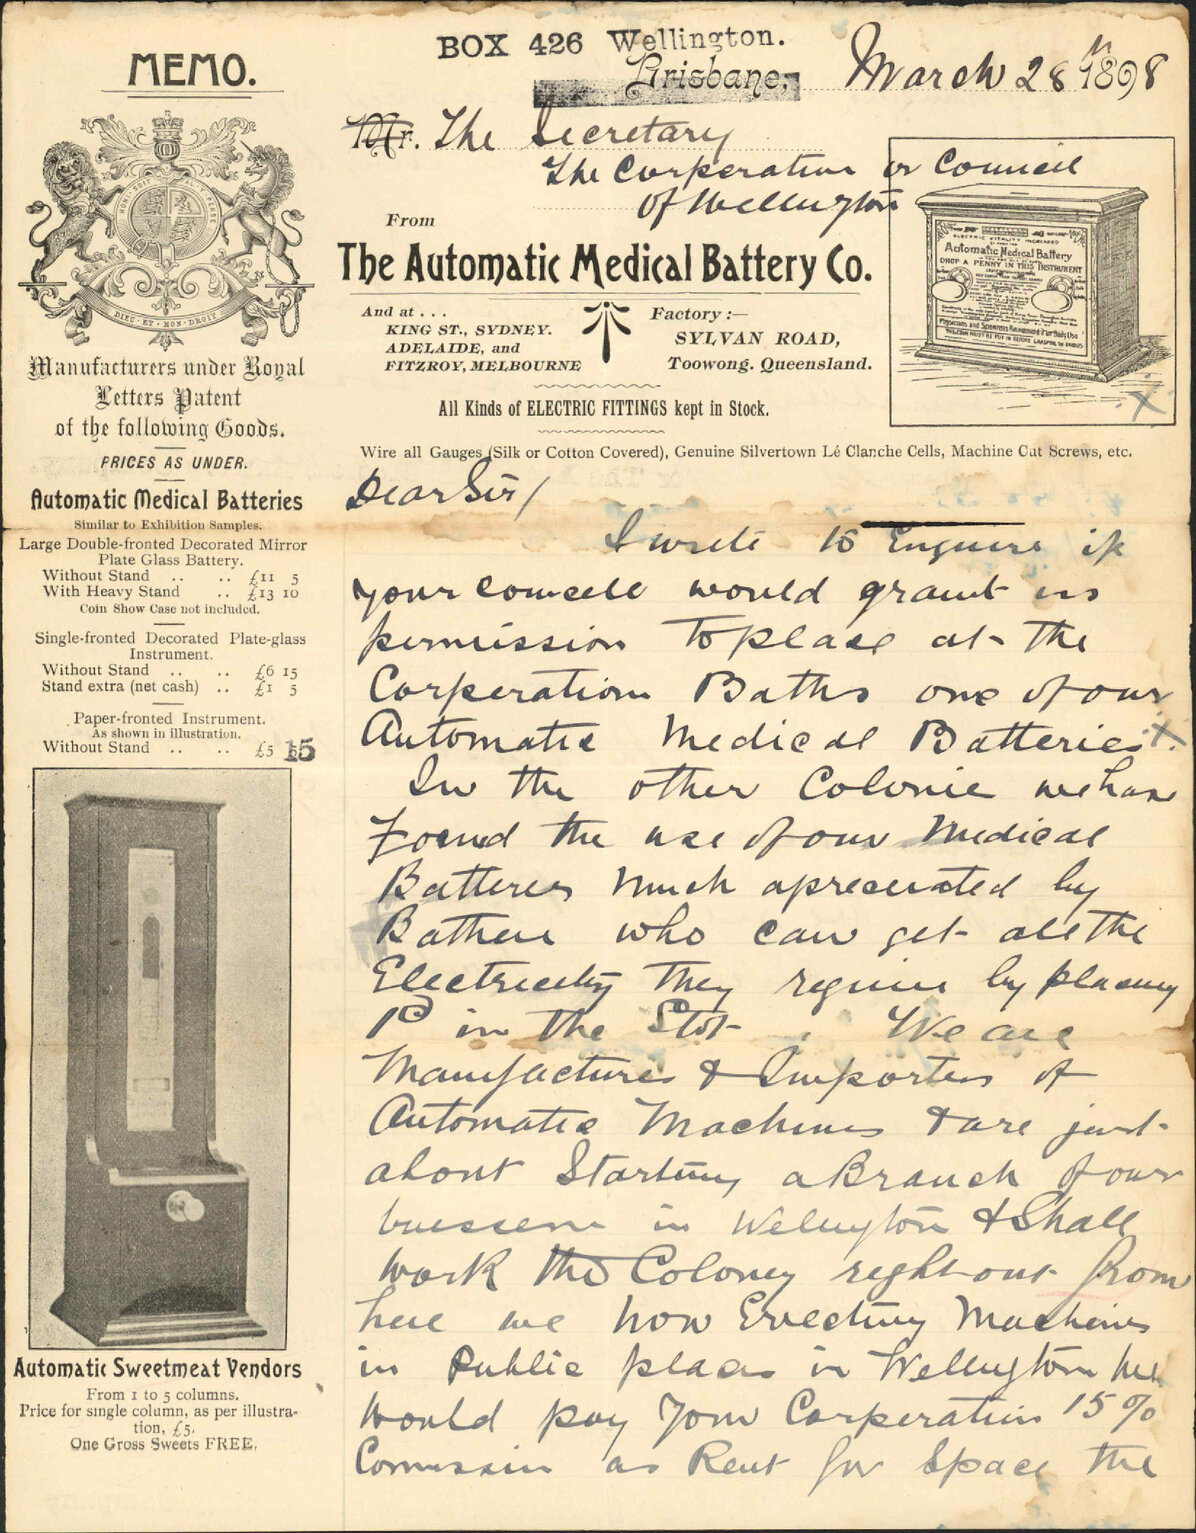 MEMO.
BOX 426 Wellington.
Brisbane,
March 28th 1898
Mr. The Secretary
The Corperation or Council
of Wellington
From
The Automatic Medical Battery Co.
And at . . .
KING ST., SYDNEY.
ADELAIDE, and
FITZROY, MELBOURNE
Factory :—
SYLVAN ROAD,
Toowong. Queensland.
All Kinds of ELECTRIC FITTINGS kept in Stock.
Wire all Gauges (Silk or Cotton Covered), Genuine Silvertown Lé Clanche Cells, Machine Cut Screws, etc.
HONI SOIT QUI MAL Y PENSE
DIEU · ET · MON · DROIT
Manufacturers under Royal
Letters Patent
of the following Goods.
PRICES AS UNDER.
Automatic Medical Batteries
Similar to Exhibition Samples.
Large Double-fronted Decorated Mirror
Plate Glass Battery.
Without Stand .. .. £11 5
With Heavy Stand .. £13 10
Coin Show Case not included.
Single-fronted Decorated Plate-glass
Instrument.
Without Stand .. .. £6 15
Stand extra (net cash) .. £1 5
Paper-fronted Instrument.
As shown in illustration.
Without Stand .. .. £5 15
Automatic Sweetmeat Vendors
From 1 to 5 columns.
Price for single column, as per illustra-
tion, £5.
One Gross Sweets FREE.
ELECTRIC VITALITY INCREASED
Automatic Medical Battery
DROP A PENNY IN THIS INSTRUMENT
Physicians and Scientists Recommend it for Daily Use
X
Dear Sir/
I write to Enquire if
your Council would grant us
permission to place at the
Corperation Baths one of our
Automatic Medical Batteries X.
In the other Colonie we have
Found the use of our Medical
Batteries much apreciated by
Bathers who can get all the
Electricity they require by placing
1D in the Slot. We are
Manufactures & Importers of
Automatic Machines & are just
about Starting a Branch of our
buessens in Wellington & Shall
work the Coloney right out from
here we now Erecting Machines
in Public places in Wellington &
would pay your Corperation 15%
Commission as Rent for Space the